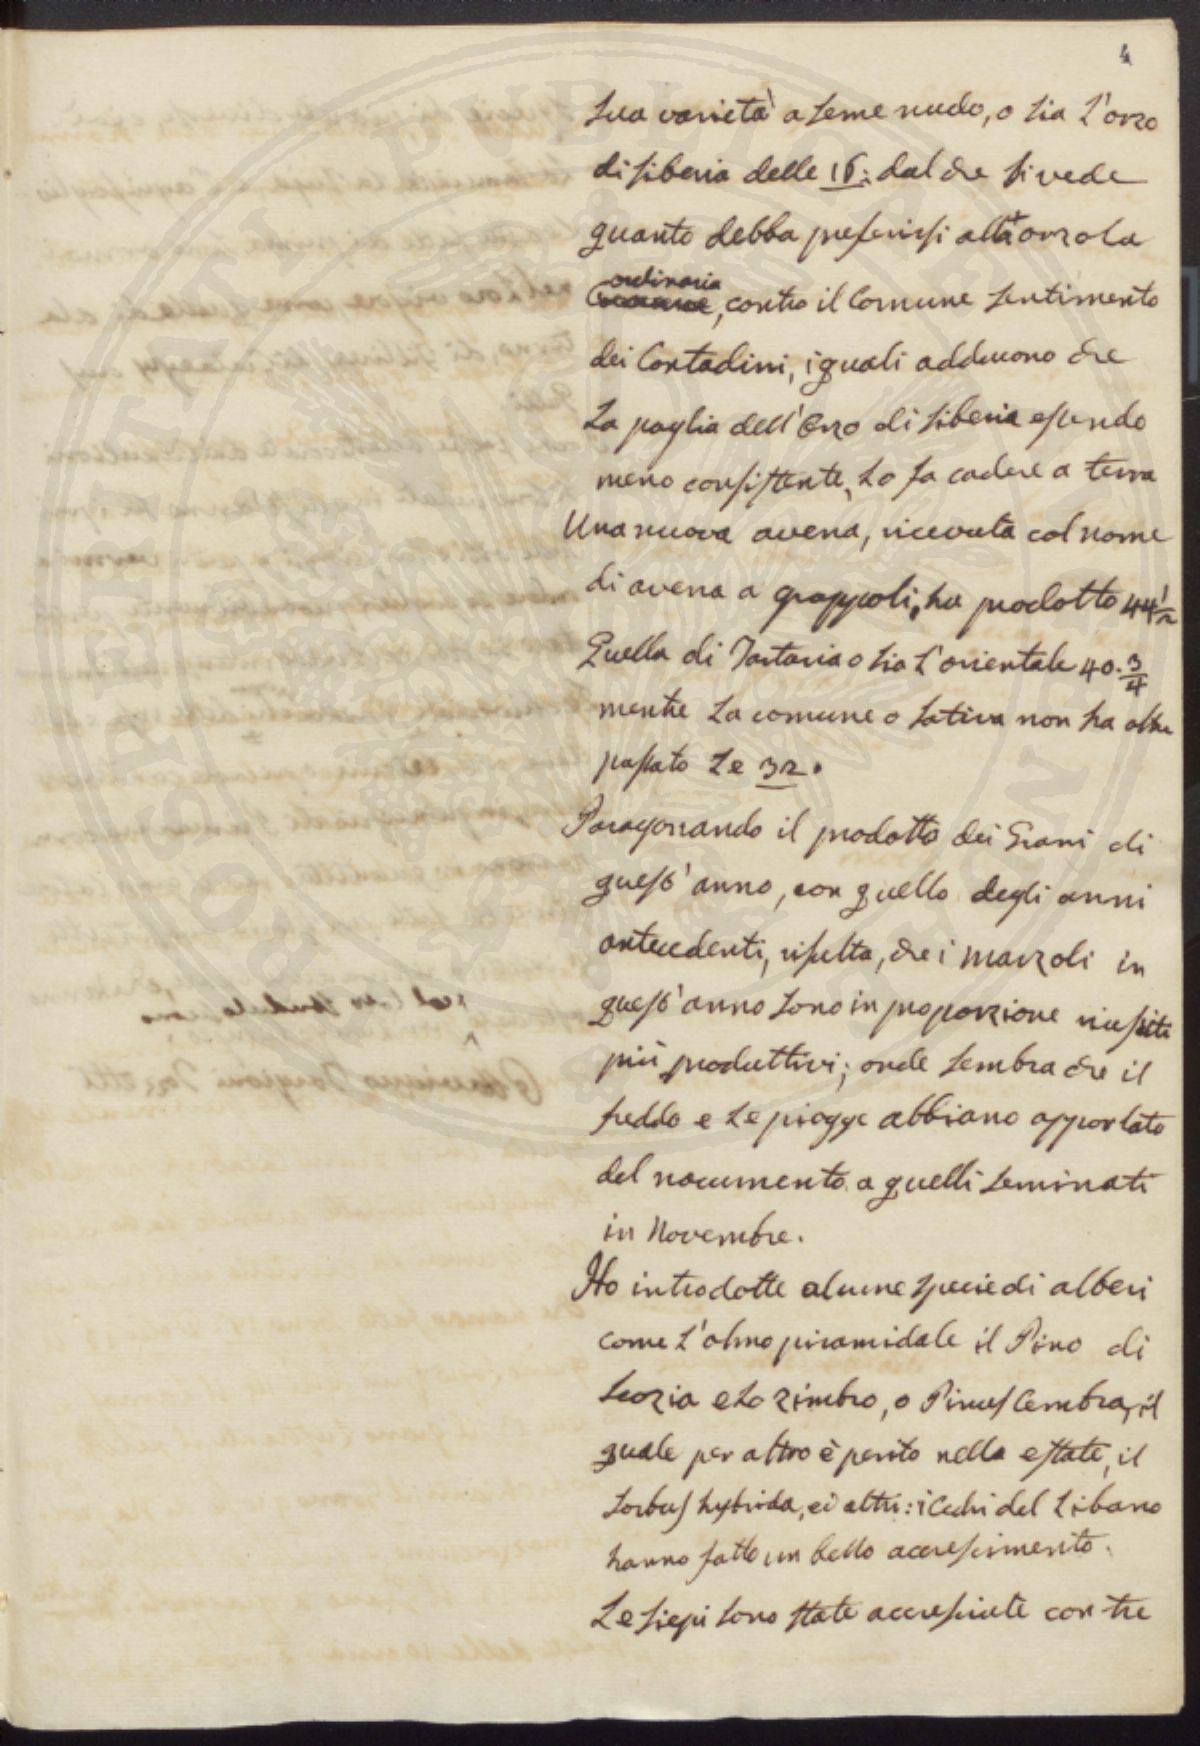 4
sua varietà a seme nudo, o sia l'orzo
di siberia delle 16: dal che si vede
quanto debba preferirsi all' orzola
ordinaria
Comune, contro il Comune sentimento
dei Contadini, i quali adducono che
la paglia dell' Orzo di siberia essendo
meno consistente, lo fa cadere a terra
Una nuova avena, ricevuta col nome
di avena a grappoli, ha prodotto 44 1/2
Quella di Tartaria o sia l'orientale 40. 3/4
mentre la comune o sativa non ha oltre
passato le 32.
Paragonando il prodotto dei Grani di
quest' anno, con quello degli anni
antecedenti, risulta, che i marzoli in
quest' anno sono in proporzione riusciti
più produttivi; onde sembra che il
freddo e le piogge abbiano apportato
del nocumento a quelli seminati
in Novembre.
Ho introdotte alcune specie di alberi
come l'olmo piramidale il Pino di
Scozia e lo zimbro, o Pinus Cembra, il
quale per altro è perito nella estate, il
Sorbus hybrida, ed altri: i Cedri del Libano
hanno fatto un bello accrescimento.
Le siepi sono state accresciute con tre